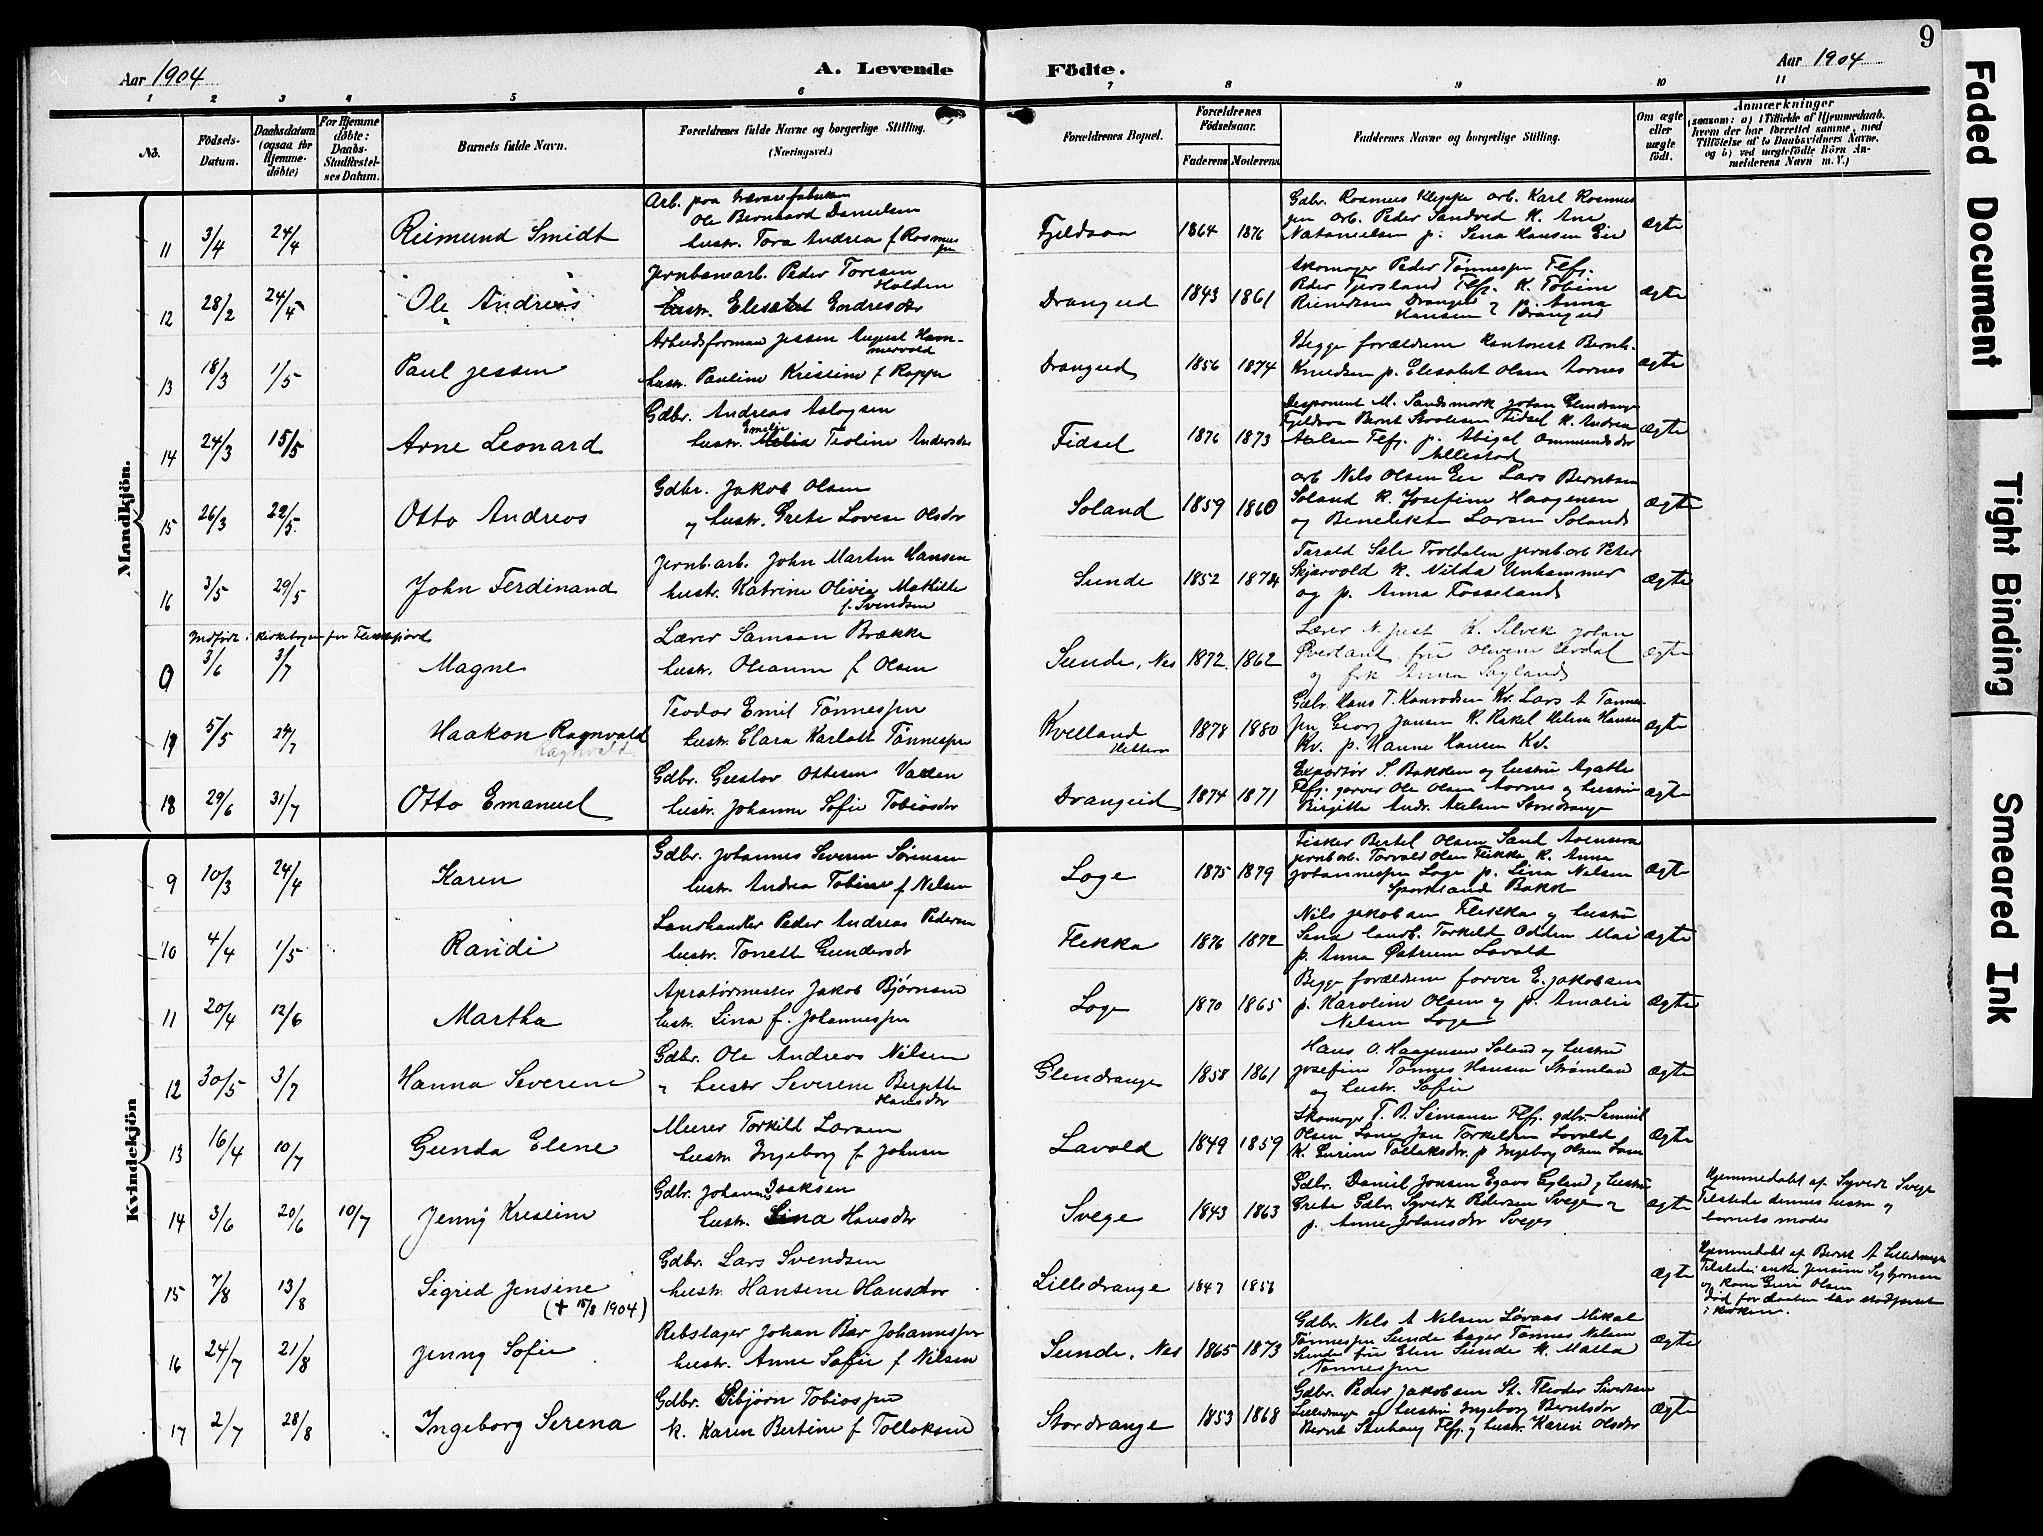 Aar 1904
A. Levende
Födte.
Aar 1904
9
1 2 3 4 5 6 7 8 9 10 11
No.
Födsels-Datum.
Daabsdatum (ogsaa for Hjemme-döbte)
For Hjemme döbte: Daabs-Stadfæstel-ses Datum.
Barnets fulde Navn.
Forældrenes fulde Navne og borgerlige Stilling.
(Næringsvei.)
Forældrenes Bopæl.
Forældrenes Födselsaar.
Faderens Moderens
Faddernes Navne og borgerlige Stilling.
Om ægte eller uægte født.
Anmærkninger
(saasom: a) i Tilfælde af Hjemmedaab, hvem der har forrettet samme, med Tilføielse af to Daabsvidners Navne, og b) ved uægtefødte Börn An-melderens Navn m. V.)
Mandkjön.
11 3/4 24/4 Reimund Smidt
Ole Bernhard Danielsen
hustr. Tora Andrea f Rasmus
sen
Fjeldsaa 1864 1876
Gdbr. Rasmus Kleppe arb. Karl Rasmus
sen arb. Peder Sandved K. Ane
Natanielsen p. Sina Hansen Eie
ægte
12 28/2 24/4 Ole Andreas
Jernbanearb. Peder Toresen
Holden
hustr. Elisabet Endresdtr
Drangeid 1843 1861
Skomager Peder Tønnessen Flfj.
Hansen Drangeid
ægte
13 18/3 1/5 Paul Jessen
Arbeidsformand Jessen August Ham-
mervold
hustr. Pauline Kristine f Rappe
Drangeid 1856 1874
Begge forældrene Kontorist Bernh.
Knudsen p. Elisabet Olsen Aarnes
ægte
14 24/3 15/5 Arne Leonard
Gdbr. Andreas Aslagsen
Emelie
hustr. Teoline Andersdtr
Fidsel 1876 1873
Disponent M. Sandsmark Johan Glendrange
Axelsen Flfj. p. Abigal Ommundsdtr
Allestad
ægte
15 26/3 22/5 Otto Andreas
Gdbr. Jakob Olsen
og hustr. Grete Lovise Olsdtr
Soland 1859 1860
arb Nils Olsen Eie Lars Berntsen
Soland K. Josefine Haagensen
og Benedikte Larsen Soland
ægte
16 3/5 29/5 John Ferdinand
Jernb.arb. John Martin Hansen
hustr. Katrine Olivia Mathilde
f. Svendsen
Sunde 1852 1874
Tarald Sele Troldalen jernb.arb Peter
Skjærvold K. Nilda Unhammer
og p. Anna Fosseland
ægte
Indført i Kirkebogen for Flekkefjord
0 3/6 3/7 Magne
Lærer Samson Brække
hustr. Oleanne f Olsen
Sunde, Nes 1872 1862
Øverland, fru Olevine Aardal
og frk Anna Søyland
ægte
17 5/5 24/7 Haakon Ragnvald
Ragnvald
Teodor Emil Tønnessen
hustr. Clara Karlott Tønnessen
Kvelland 1878 1880
Gdbr. Hans T. Konradsen Kv. Lars A Tønnes
sen Georg Jansen K. Rakel Helene Hansen
Kv. p. Hanne Hansen Kv.
ægte
18 29/6 31/7 Otto Emanuel
Gdbr. Gustav Ottesen
hustr. Johanne Sofie Tobiasdtr
Drangeid 1874 1871
Exportør S. Bakken og hustru Agathe
Flfj. garver Ole Olsen Aarnes og hustru
Birgitte Andr. Axelsen Stordrange
ægte
Kvindekjön
9 10/3 24/4 Karen
Gdbr. Johannes Severin Sørensen
hustr. Andrea Tobine f Nelsen
Loge 1875 1879
Fisker Bertel Olsen Sand
jernb.arb. Torvald Olsen Flikke K. Anna
Johannessen Loge p. Lina Nelsen
Sparkland Bakk
ægte
10 4/4 1/5 Randi
Landhandler Peder Andreas Pedersen
hustr. Tonett Gundersdtr
Flikka 1876 1872
Nils Jakobsen Flikka og hustru
Sina landb. Torkild Odden
p. Anna Østrem Lavold
ægte
11 20/4 12/6 Martha
Jakob Bjørnsen
hustr. Lina f. Johannessen
Loge 1870 1865
Begge forældrene farver E. Jakobsen
p. Karoline Olsen og p. Amalie
Nelsen Loge
ægte
12 30/5 3/7 Hanna Severine
Gdbr. Ole Andreas Nilsen
" hustr Severine Bergitte
Hansdtr
Glendrange 1858 1861
Hans O. Haagensen Soland og hustru
Josefine Tønnes Hansen Strømland
og hustr. Sofie
ægte
13 16/4 10/7 Gunda Elene
Murer Torkild Larsen
hustr. Ingeborg f Johnsen
Lavold 1849 1859
Skomager T. B. Simonsen Flfj. gdbr. Samuel
Olsen Jan Torkildsen Lavold
K. Gurine Tollaksdtr. p Ingeborg Olsen
ægte
14 3/6 20/6 10/7 Jenny Kristine
Gdbr. Johan Isaksen
hustr. Lina Hansdtr
Svege 1843 1863
Gdbr. Daniel Jonsen Egeland og hustru
Grete Gdbr. Syvert Pedersen Svege
p. Anne Johansdtr Svege
ægte
Hjemmedøbt af Syvert Svege
Tilstede dennes hustru og
barnets moder
15 7/8 13/8 Sigrid Jensine
(✝ 15/8 1904)
Gdbr. Lars Svendsen
hustr. Hansine Hansdtr
Lilledrange 1847 1856
ægte
Hjemmedøbt af Bernt A Lilledrange
og kone Guri Olsen
Død før daaben blev stadfæstet
i kirken.
16 24/7 21/8 Jenny Sofie
Rebslager Johan Johannessen
hustr. Anne Sofie f Nilsen
Sunde, Nes 1865 1873
Gdbr. Nels A Nelsen Løvaas Mikal
Tønnessen Sunde bager Tønnes Nelsen
Sunde fru Elen Sunde K. Malla
Tønnessen
ægte
17 2/7 28/8 Ingeborg Serena
Gdbr. Sibjørn Tobiassen
K. Karen Bertine f Tollaksen
Stordrange 1853 1868
Gdbr. Peder Jakobsen St. Theodor Sivertsen
Lilledrange og hustru Ingeborg Berntsdtr
Bernt Stuhaug Flfj. og hustr. Karen Olsdtr
ægte
Faded Document
Tight Binding
Smeared Ink